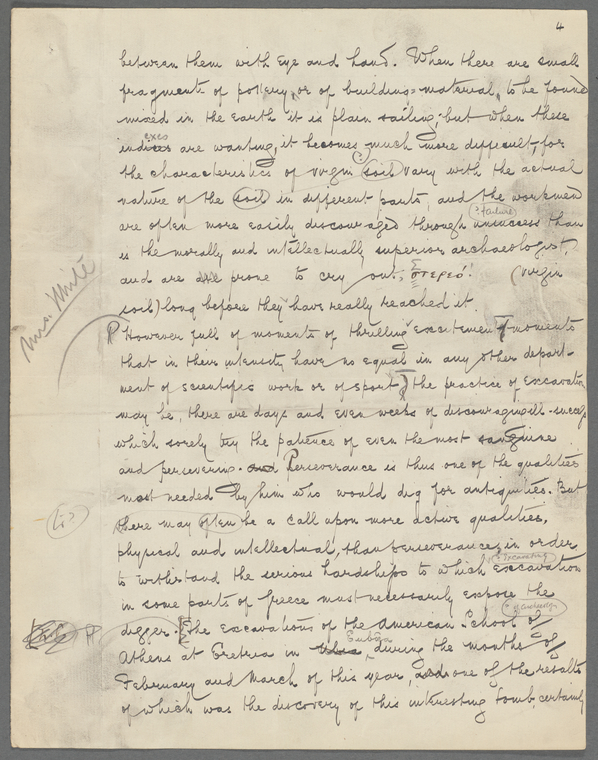 4
between them with eye and hand. When there are small
fragments of pottery, or of building-material, to be found
mixed in the earth it is plain sailing; but when these
exes
indices are wanting, it becomes much more difficult, for
the characteristics of virgin soil vary with the actual
nature of the soil in different parts, and the workmen
? failure
are often more easily discouraged through unsuccess than
is the morally and intellectually superior archaeologist,
and are all prone to cry out, στερεό! (virgin
soil) long before they have really reached it.
Mrs. White
P However full of moments of thrilling excitement (moments
that in their intensity have no equal in any other depart-
ment of scientific work or of sport) the practice of Excavation
may be, there are days and even weeks of discouraging ill-success
which sorely try the patience of even the most sanguine
and persevering. and Perseverance is thus one of the qualities
most needed by him who would dig for antiquities. But
there may often be a call upon more active qualities,
physical and intellectual, than perseverance, in order
? Excavating
to withstand the serious hardships to which excavation
in some parts of Greece must necessarily expose the
digger. The Excavations of the American School of
P
Euboea
Athens at Eretria in during the months of
February and March of this year, and one of the results
of which was the discovery of this interesting tomb, certainly